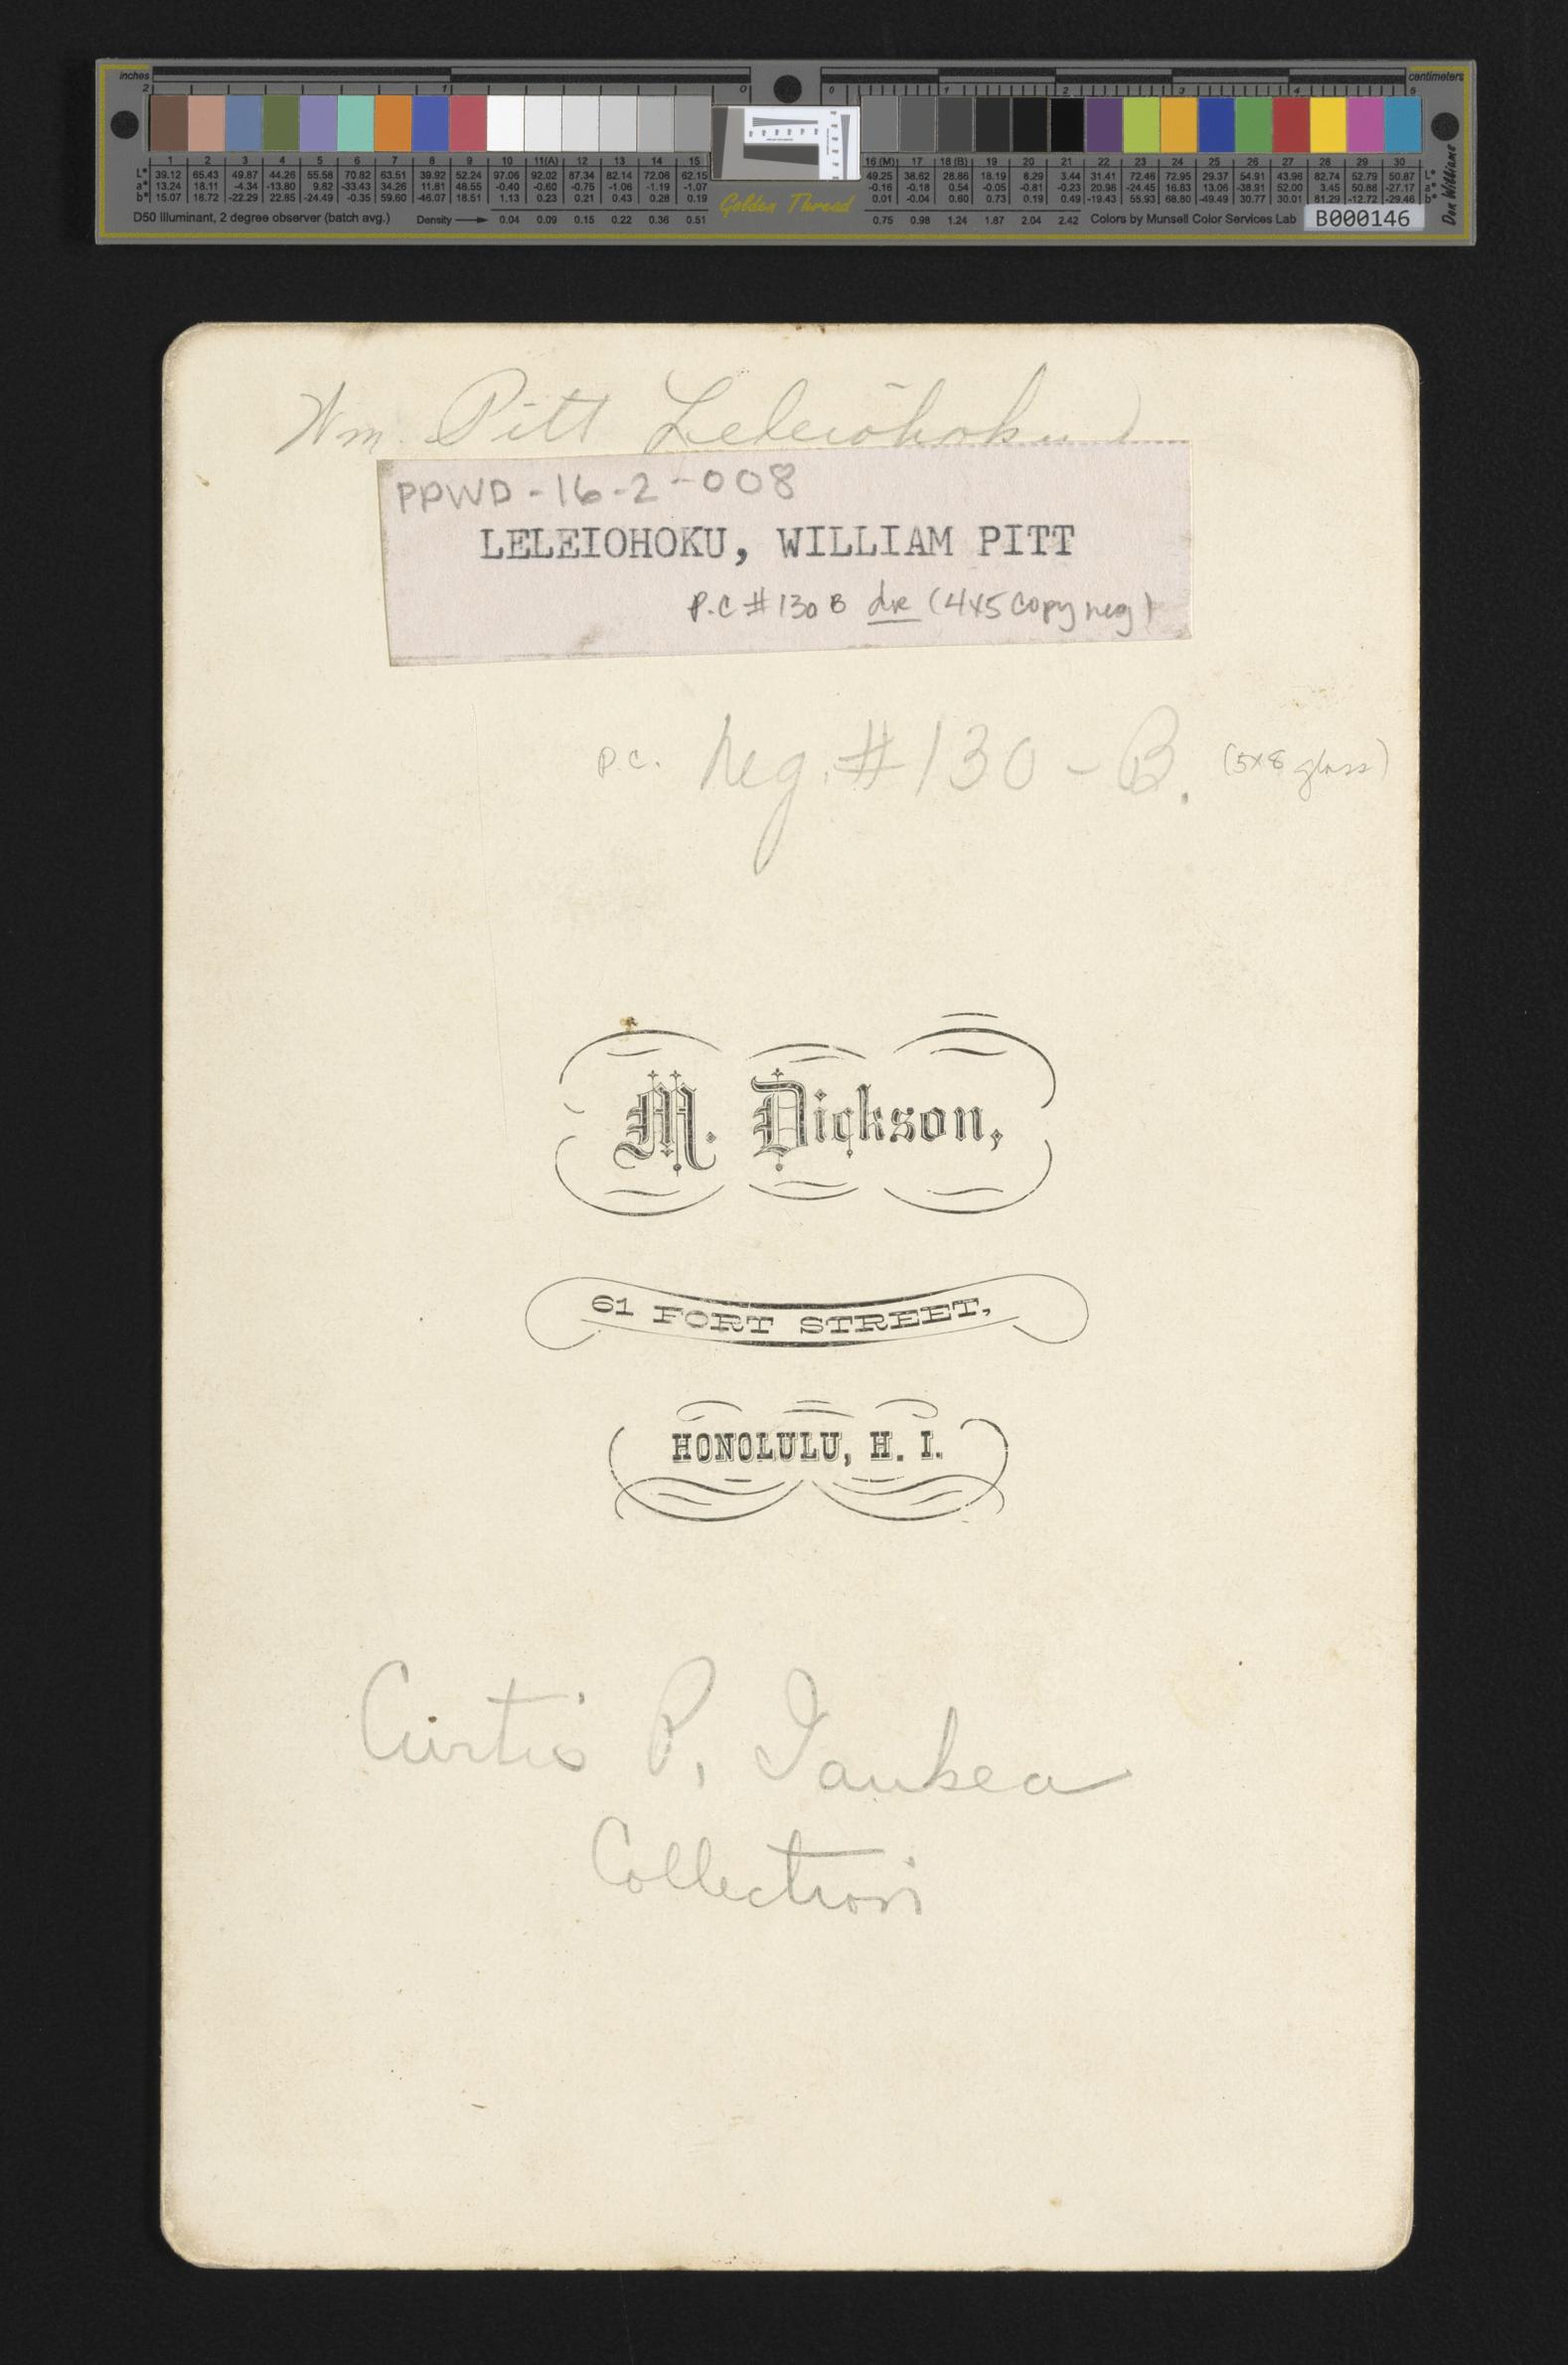 inches
centimeters
2 1 0 0 1 2 3 4 5
1 2 3 4 5 6 7 8 9 10 11(A) 12 13 14 15 16 (M) 17 18 (B) 19 20 21 22 23 24 25 26 27 28 29 30
L* 39.12 65.43 49.87 44.26 55.58 70.82 63.51 39.92 52.24 97.06 92.02 87.34 82.14 72.06 62.15 49.25 38.62 28.86 18.19 8.29 3.44 31.41 72.46 72.95 29.37 54.91 43.96 82.74 52.79 50.87 L*
a* 13.24 18.11 -4.34 -13.80 9.82 -33.43 34.26 11.81 48.55 -0.40 -0.60 -0.75 -1.06 -1.19 -1.07 -0.16 -0.18 0.54 -0.05 -0.81 -0.23 20.98 -24.45 16.83 13.06 -38.91 52.00 3.45 50.88 -27.17 a*
b* 15.07 18.72 -22.29 22.85 -24.49 -0.35 59.60 -46.07 18.51 1.13 0.23 0.21 0.43 0.28 0.19 0.01 -0.04 0.60 0.73 0.19 0.49 -19.43 55.93 68.80 -49.49 30.77 30.01 81.29 -12.72 -29.46 b*
D50 Illuminant, 2 degree observer (batch avg.) Density 0.04 0.09 0.15 0.22 0.36 0.51 Golden Thread 0.75 0.98 1.24 1.67 2.04 2.42 Colors by Munsell Color Services Lab B000146
Don Williams
Wm. Pitt Leleiōhoku
PPWD-16-2-008
LELEIOHOKU, WILLIAM PITT
P.C # 130 B (4x5 copy neg)
P.C. Neg. # 130 - B. (5x8 glass)
M. Dickson,
61 FORT STREET,
HONOLULU, H. I.
Curtis P. Iaukea
Collection